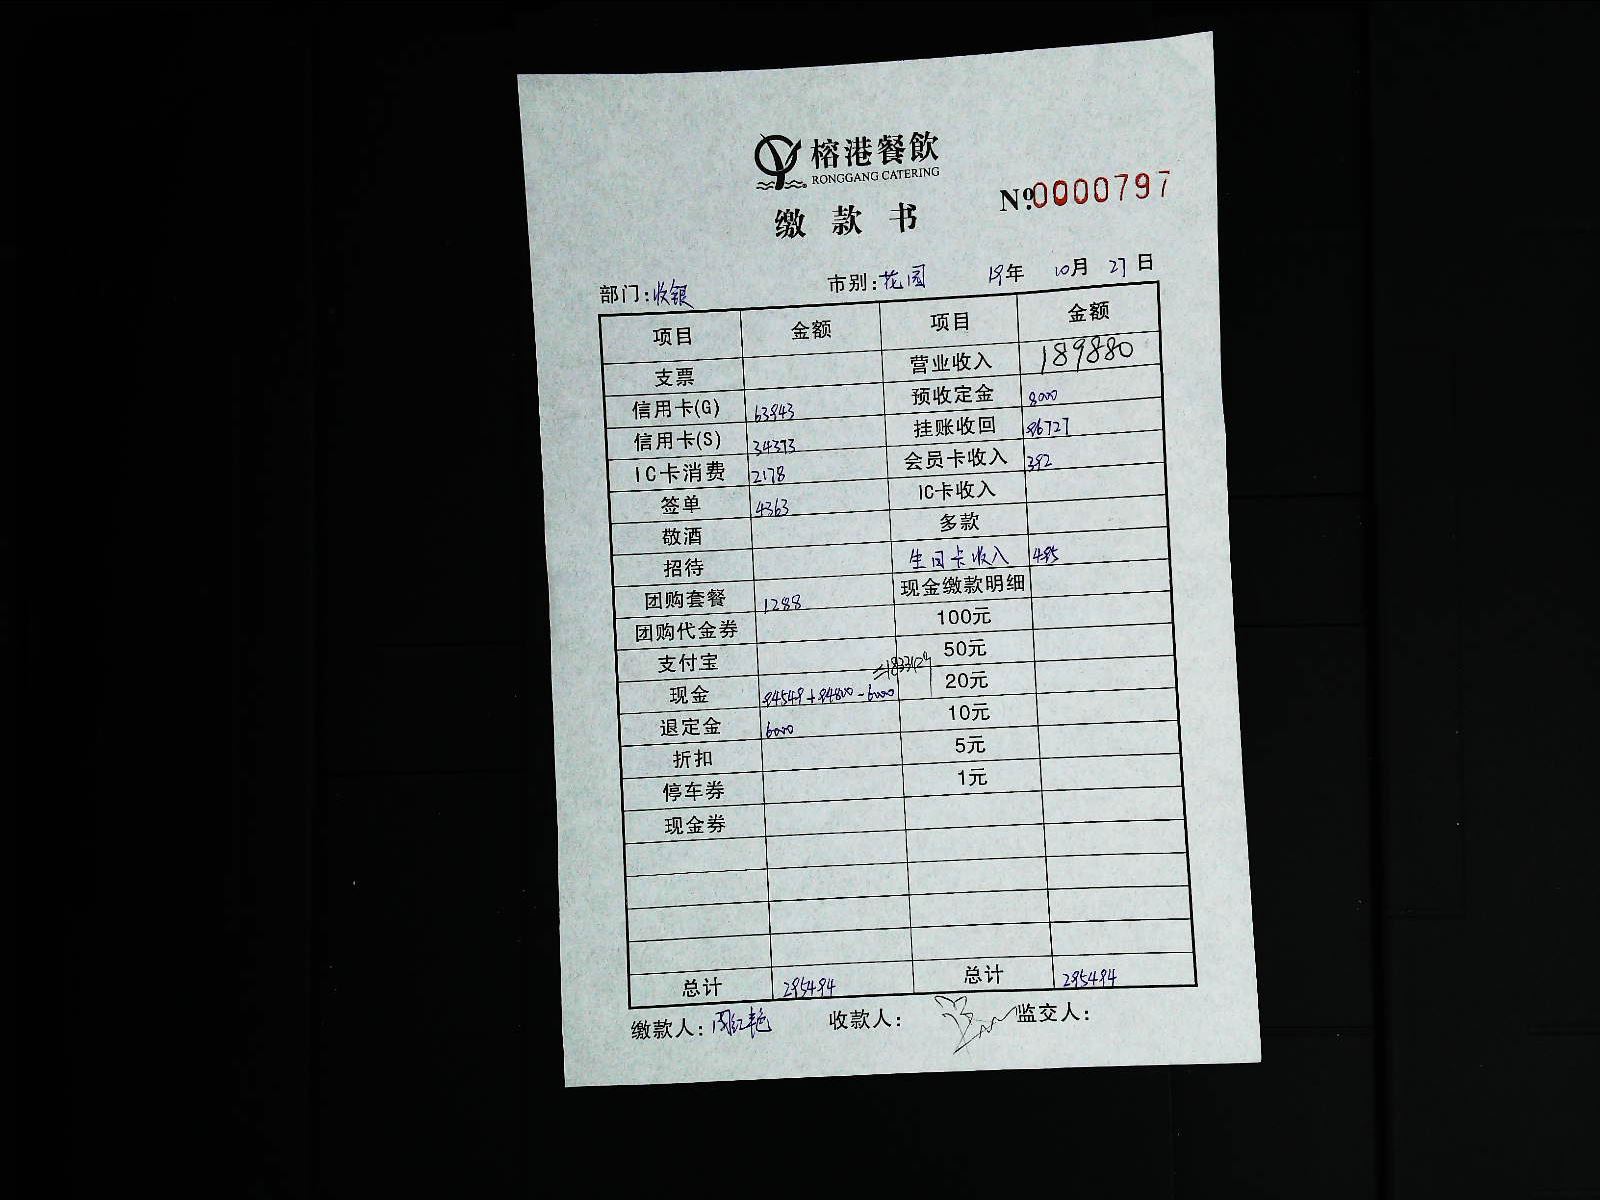 榕港餐飲
RONGGANG CATERING
缴款书
№0000797
部门:收银 市别:花园 19年 10月 27日
项目 金额 项目 金额
支票 营业收入 189880
信用卡(G) 63943 预收定金 8000
信用卡(S) 34373 挂账收回 86727
IC卡消费 2178 会员卡收入 392
签单 4363 IC卡收入
敬酒 多款
招待 生日卡收入 485
团购套餐 1288 现金缴款明细
团购代金券 100元
支付宝 50元
现金 84549+84800-6000 20元
退定金 6000 10元
折扣 5元
停车券 1元
现金券
总计 285484 总计 285484
缴款人:周红艳 收款人: 监交人: